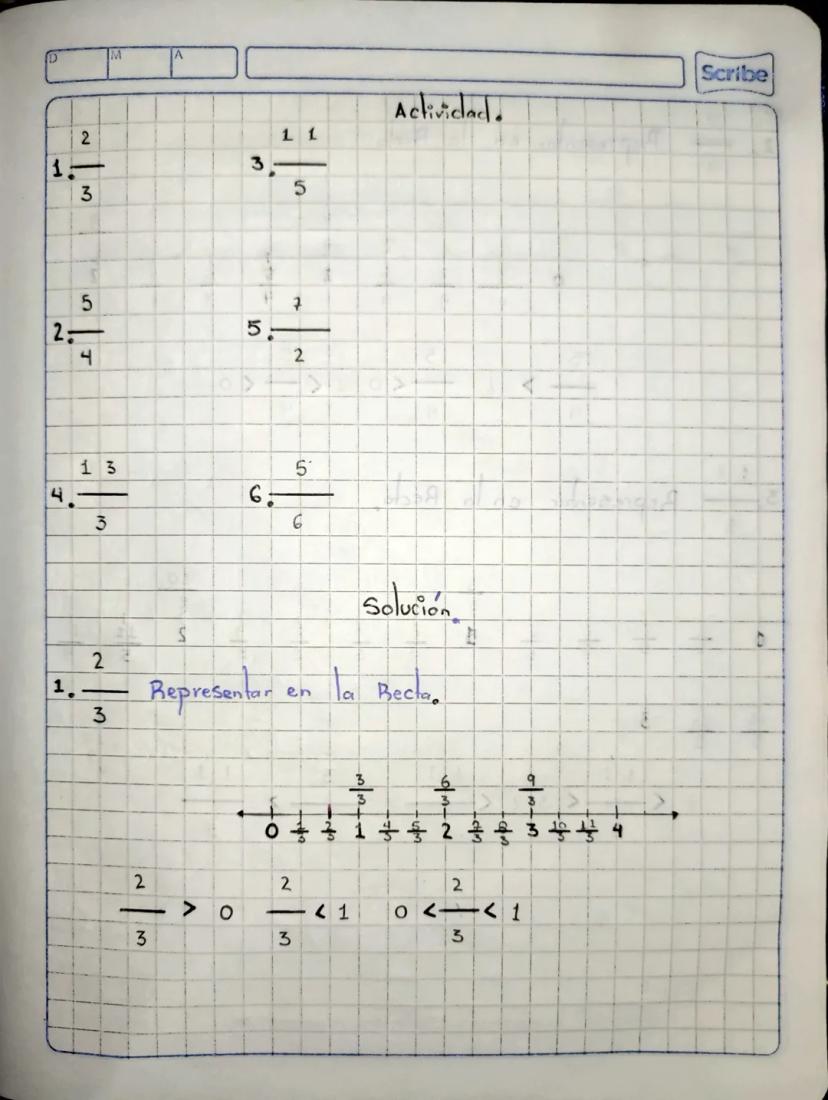 D M A
Scribe
Actividad.
1. 2/3 3. 11/5
2. 5/4 5. 7/2
4. 13/3 6. 5/6
Solución.
1. 2/3 Representar en la Recta.
3/3 6/3 9/3
0 1/3 2/3 1 4/3 5/3 2 7/3 8/3 3 10/3 11/3 4
2/3 > 0 2/3 < 1 0 < 2/3 < 1